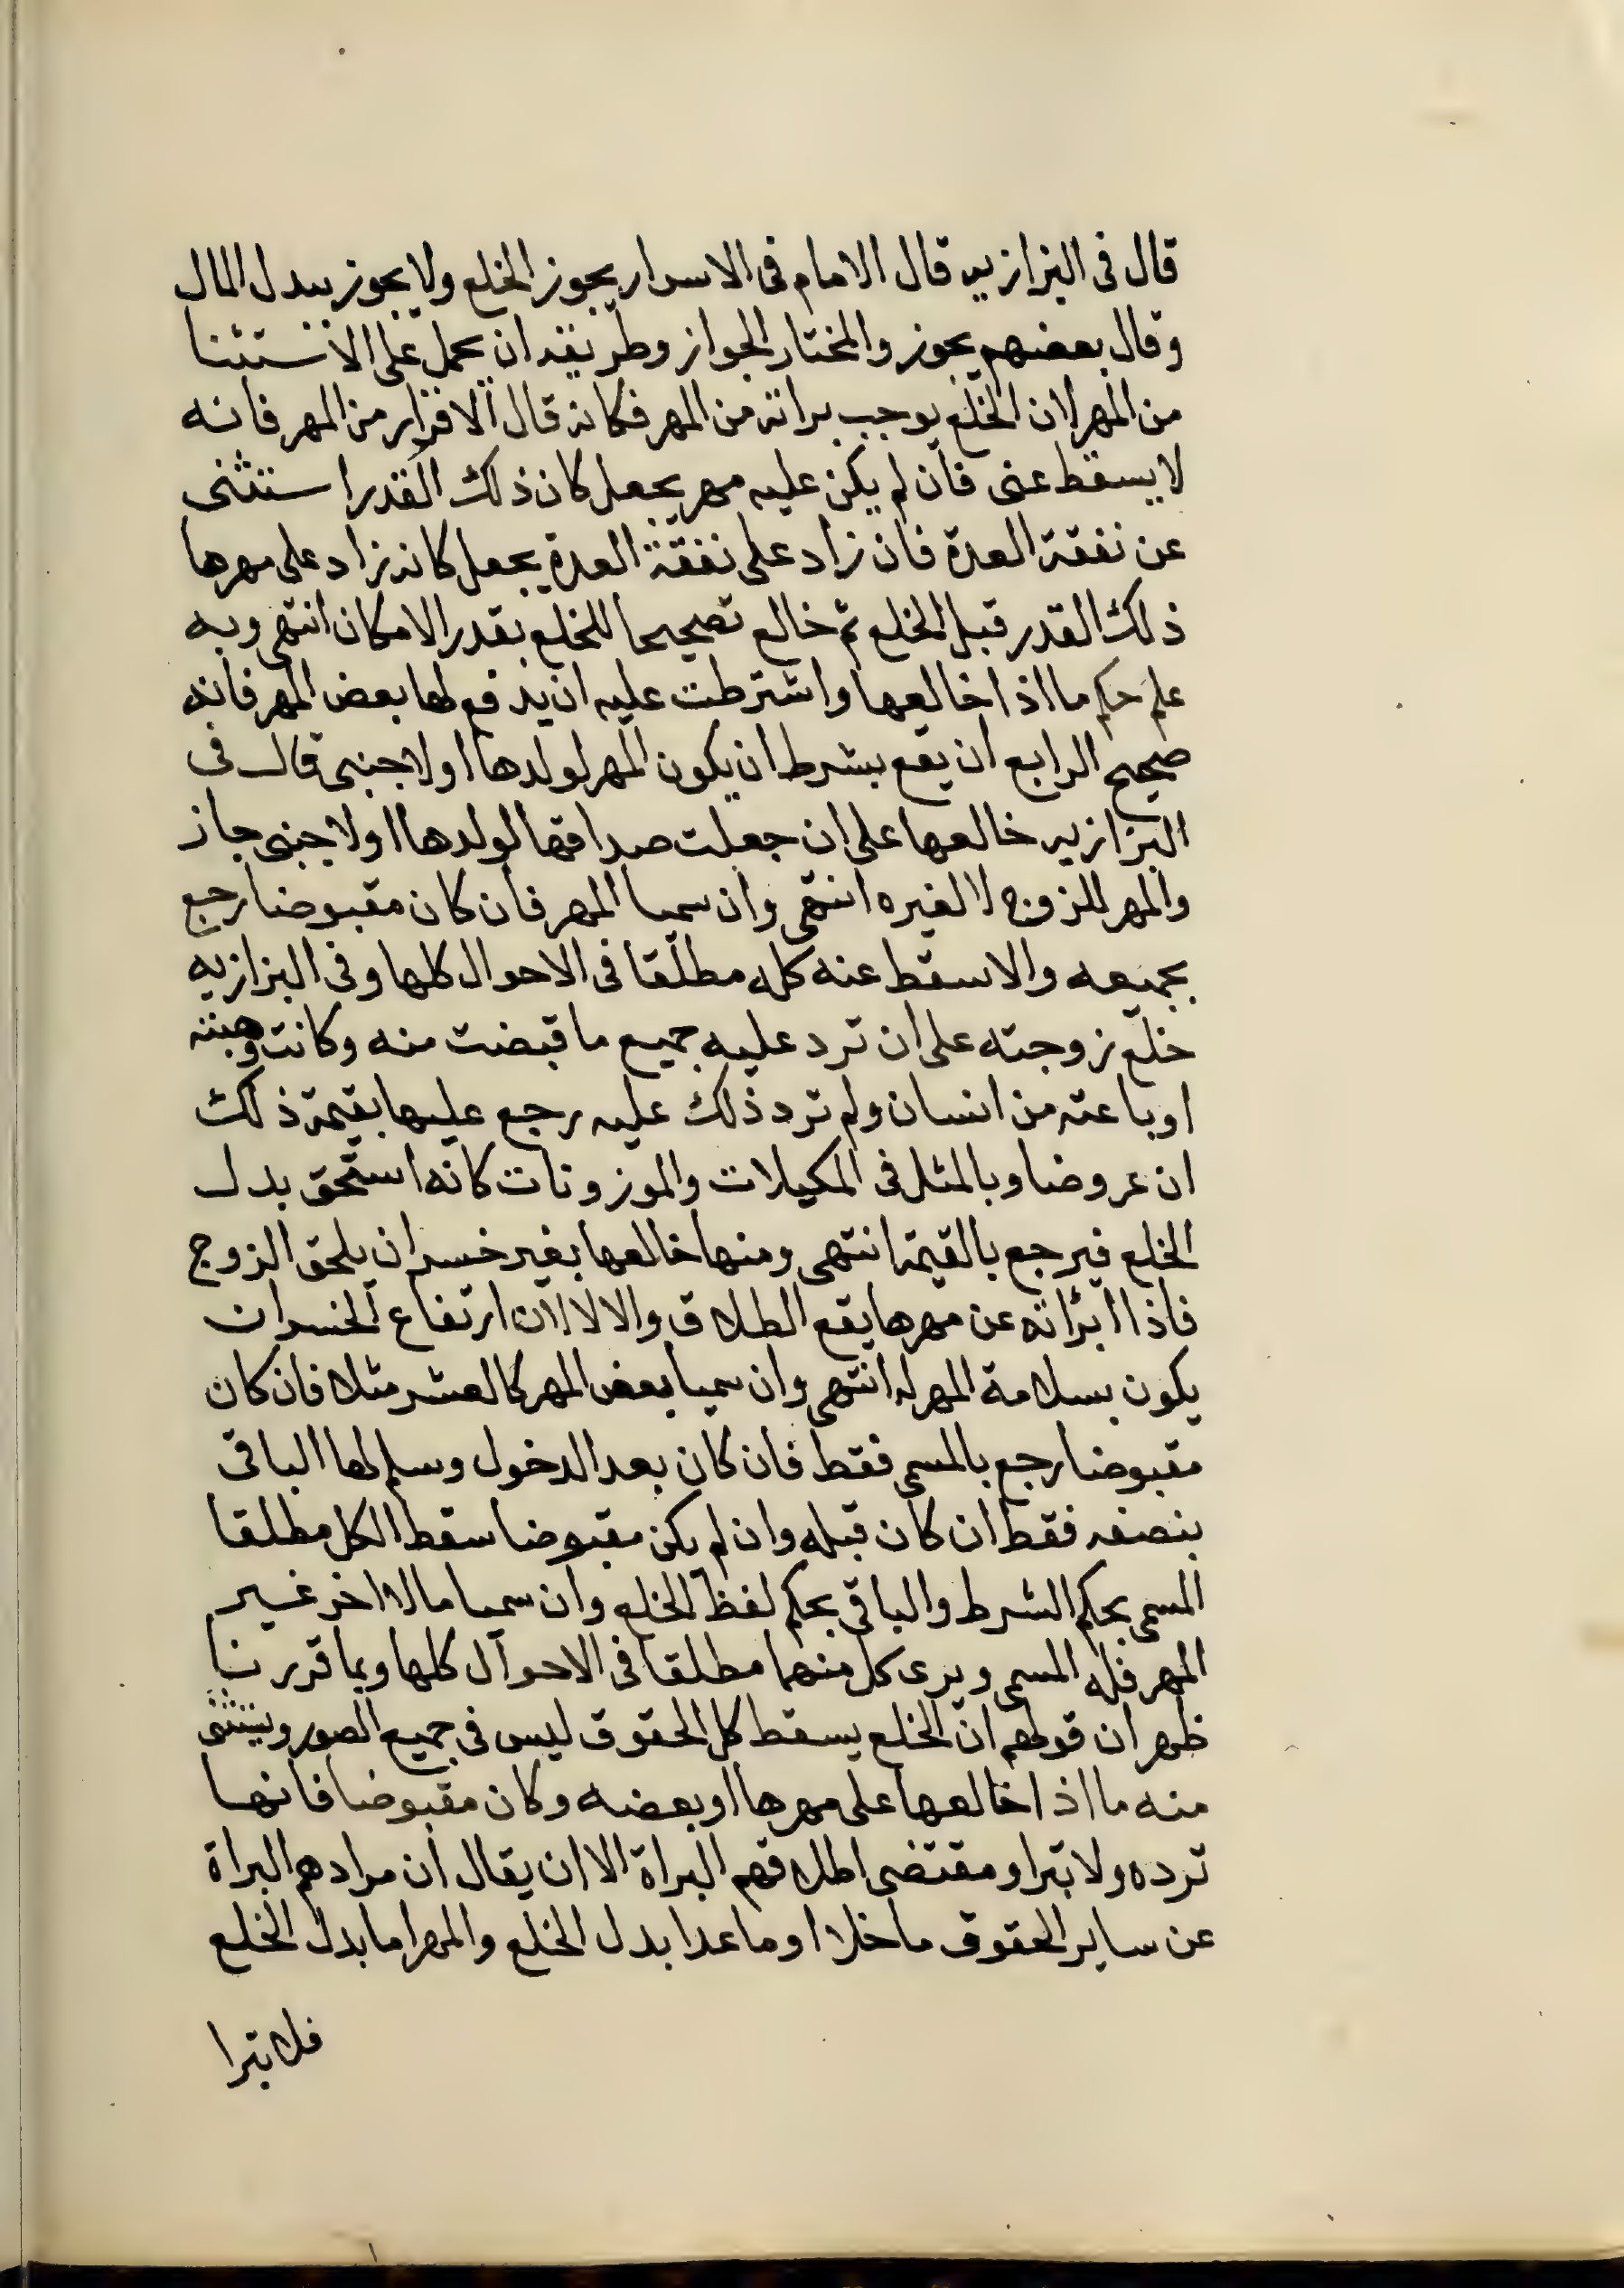 قال فى البزازيه قال الامام فى الاسرار يجوز الخلع ولا يجوز ببدل المال
وقال بعضهم يجوز والمختار الجواز وطريقه ان يحمل على الاستثنا
من المهر لان الخلع يوجب براته من المهر فكانه قال الا قرار من المهر فانه
لا يسقط عنى فان لم يكن عليه مهر يجعل كان ذلك القدر استثنى
عن نفقة العدة فان زاد على نفقة العدة يجعل كانه زاد على مهرها
ذلك القدر قبل الخلع ثم خالع تصحيحا للخلع بقدر الامكان انتهى وبه
علم حكم ما اذا خالعها واشترطت عليه ان يدفع لها بعض المهر فانه
صحيح الرابع ان يقع بشرط ان يكون المهر لولدها او لاجنبى قال فى
البزازيه خالعها على ان جعلت صداقها لولدها او لاجنبى جاز
والمهر للزوج لا لغيره انتهى وان سميا المهر فان كان مقبوضا رجع
بجميعه والا سقط عنه كله مطلقا فى الاحوال كلها وفى البزازيه
خلع زوجته على ان ترد عليه جميع ما قبضت منه وكانت وهبته
او باعته من انسان ولم ترد ذلك عليه رجع عليها بقيمة ذلك
ان عروضا وبالمثل فى المكيلات والموزونات كانه استحق بدل
الخلع فيرجع بالقيمة انتهى ومنها خالعها بغير خسران يلحق الزوج
فاذا ابرائه عن مهرها يقع الطلاق والا لا لان ارتفاع الخسران
يكون بسلامة المهر له انتهى وان سميا بعض المهر كالعشر مثلا فان كان
مقبوضا رجع بالمسمى فقط فان كان بعد الدخول وسلم لها الباقى
بنصفه فقط ان كان قبله وان لم يكن مقبوضا سقط الكل مطلقا
المسمى بحكم الشرط والباقى بحكم لفظ الخلع وان سميا مالا اخر غير
المهر فله المسمى وبرى كل منهما مطلقا فى الاحوال كلها وبما قررنا
ظهر ان قولهم ان الخلع يسقط كل الحقوق ليس فى جميع الصور ويستثنى
منه ما اذا خالعها على مهرها او بعضه وكان مقبوضا فانها
ترده ولا تبرا ومقتضى اطلاقهم البراة الا ان يقال ان مرادهم البراة
عن ساير الحقوق ما خلا او ما عدا بدل الخلع والمهر اما بدل الخلع
فلا تبرا